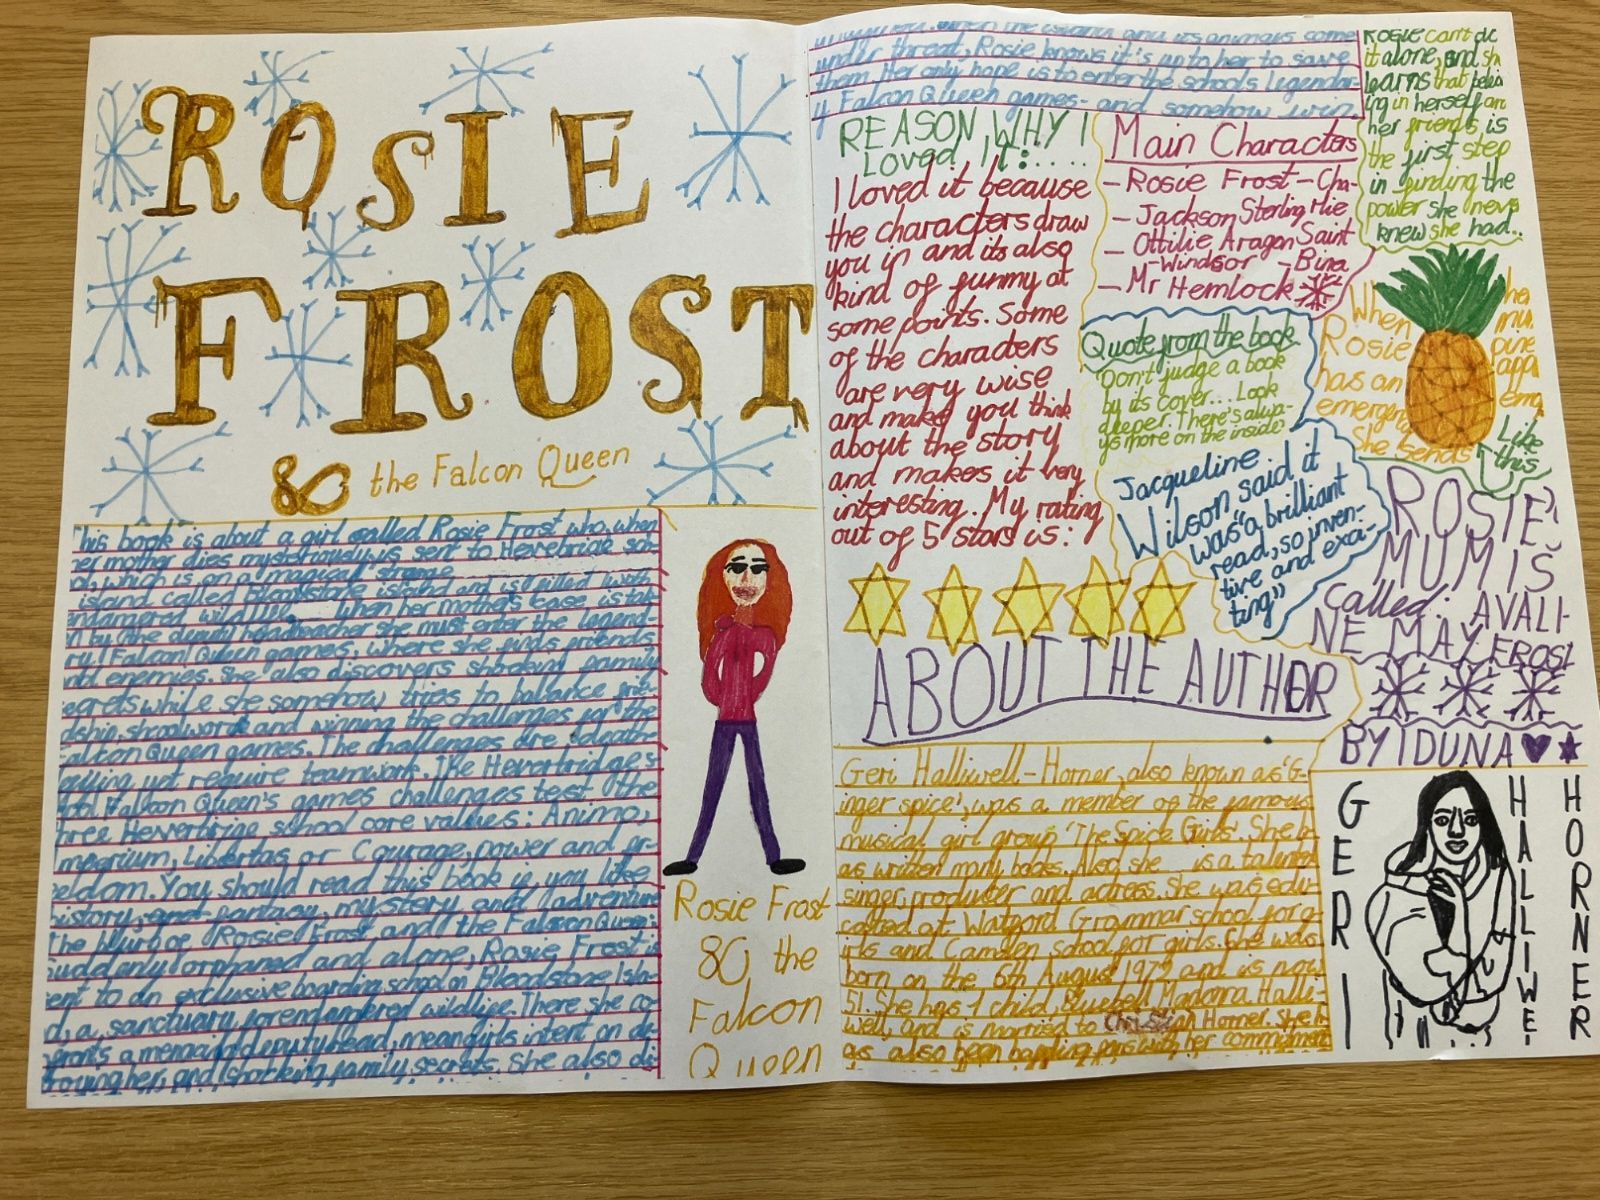 ROSIE
FROST
& the Falcon Queen
This book is about a girl called Rosie Frost who, when
her mother dies mysteriously is sent to Heverbridge sch-
ol, which is on a magical strange
island called Bloodstone island and is filled with
endangered wildlife. When her mother's case is tak-
en by the deputy headteacher she must enter the legend-
ary Falcon Queen games, where she finds friends
and enemies. She also discovers shocking family
secrets while she somehow tries to ballance frie-
dship, schoolwork and winning the challenges for the
Falcon Queen games. The challenges are death-
yet require teamwork. The Hevertridges
Falcon Queen's games challenges test the
three Heverbridge school core values: Animo,
Imperium, Libertas or Courage, power and fr-
eedom. You should read this book if you like
history, and fantasy, mystery and adventure
The blurb of 'Rorsie Frost and the Falcon Queen:
Suddenly orphaned and alone, Rosie Frost is
sent to an exclusive boarding school on Bloodstone Isla-
d, a sanctuary for endangered wildlife. There she co-
nfronts a menacing deputy head, mean girls intent on de-
stroying her, and shocking family secrets. She also di
Rosie Frost
& the
Falcon
Queen
when the island and its animals come
under threat, Rosie knows it's up to her to save
them. Her only hope is to enter the schools legendar-
y Falcon Queen games- and somehow win.
ROSIE can't do
it alone, and sh
learns that belie
ing in herself an
her friends is
the first step
in finding the
power she never
knew she had..
REASON WHY I
Loved It:....
I loved it because
the characters draw
you in and its also
kind of funny at
some points. Some
of the characters
are very wise
and make you think
about the story
and makes it very
interesting. My rating
out of 5 stars is:
Main Characters
- Rosie Frost - Cha-
- Jackson Sterling Mie
- Ottilie Aragon Saint
-Windsor - Bina
- Mr Hemlock
Quote from the book
Don't judge a book
by its cover... Look
deeper. There's alwa-
ys more on the inside.
Jacqueline
Wilson said it
was "a brilliant
read, so inven-
tive and exci-
ting"
When
Rosie
has an
emergen
She sends
ha
mu
pine
appl
emo
Like
this
ROSIE'
MUM IS
Called: AVALI-
NE MAY FROST
BY IDUNA
ABOUT THE AUTHOR
Geri Halliwell-Horner, also known as 'G-
inger spice', was a member of the famous
musical girl group 'The Spice Girls'. She h-
as written many books. Also she is a talented
singer, producter and actress. She was edu-
cated at Watford Grammar school for g-
irls and Camden school for girls. She was
born on the 6th August 1972 and is now
51. She has 1 child, Bluebell Madonna Halli-
well, and is married to Christian Horner. She h-
as also been baffling fans with her commitment
GERI
HALLIWE
HORNER